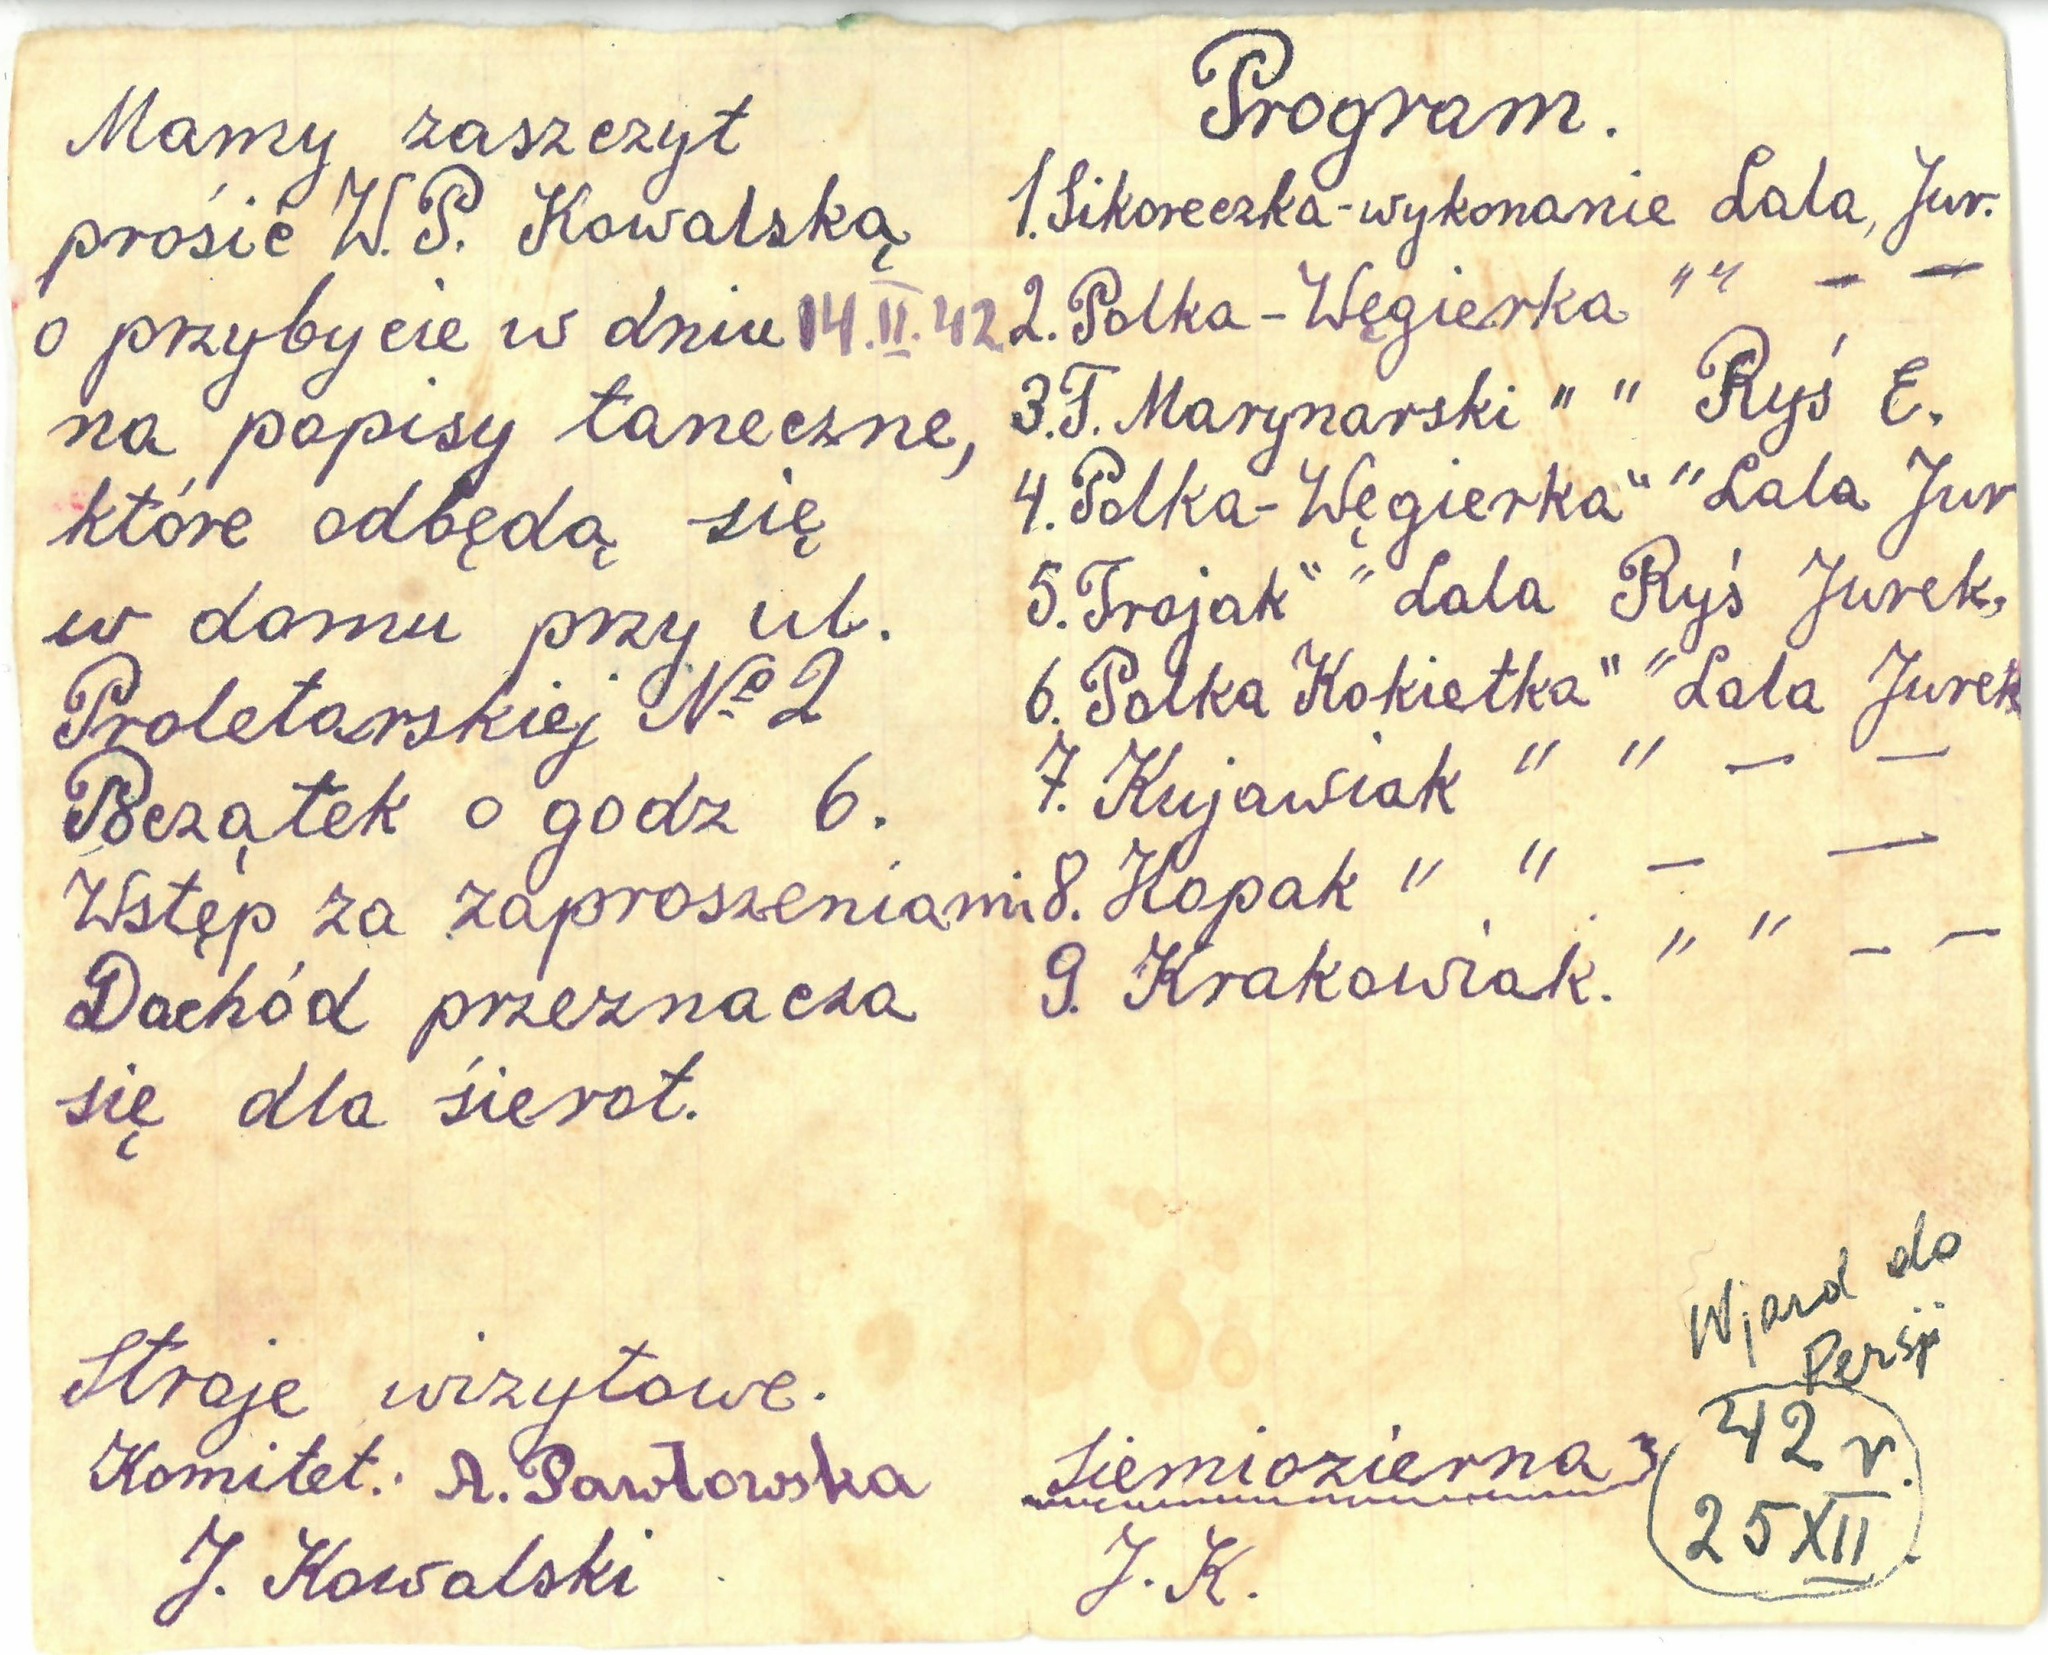 Mamy zaszczyt
prosić W.P. Kowalską
o przybycie w dniu 14.II.42
na popisy taneczne,
które odbędą się
w domu przy ul.
Proletarskiej № 2
Początek o godz 6.
Wstęp za zaproszeniami
Dochód przeznacza
się dla śierot.
Stroje wizytowe.
Komitet: A. Pawłowska
J. Kowalski
Program.
1. Sikoreczka - wykonanie Lala, Jur.
2. Polka - Węgierka " " — —
3. T. Marynarski " " Ryś E.
4. Polka - Węgierka " " Lala Jur
5. Trojak " " Lala Ryś Jurek,
6. Polka Kokietka " " Lala Jurek
7. Kujawiak " " — —
8. Hopak " " — —
9. Krakowiak. " " — —
Siemiozierna
J. K.
Wjazd do
Persji
42 r.
25 XII